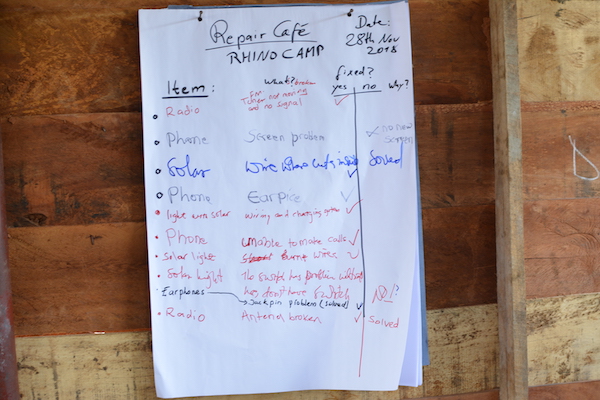 Repair Café
RHINO CAMP
Date:
28th Nov
2018
Item: what? broken fixed?
yes no why?
Radio FM: Tuner not moving
and no signal
Phone Screen problem no new
screen
Solar wire solved
Phone Earpice
light solar wiring and charging system
Phone unable to make calls
Solar light burnt wires
Solar light The has problem
has don't have Switch NO!?
Earphones Jackpin problem (solved)
Radio Antena broken Solved